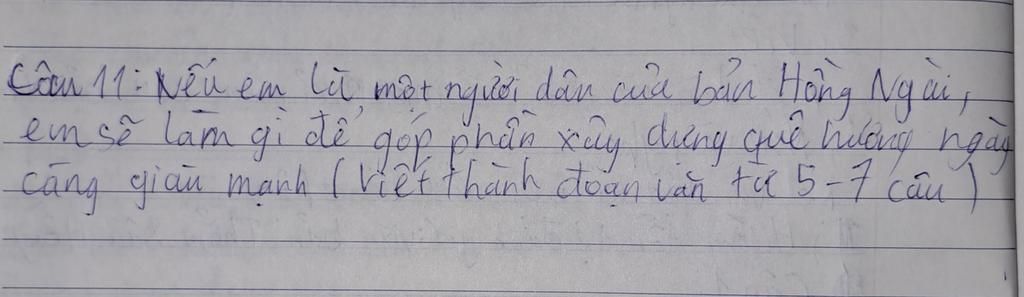 Câu 11: Nếu em là một người dân của bản Hồng Ngài,
em sẽ làm gì để góp phần xây dựng quê hương ngày
càng giàu mạnh (Viết thành đoạn văn từ 5-7 câu)